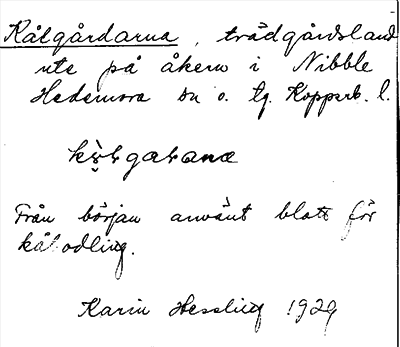 Kålgårdarna, trädgårdsland
ute på åkern i Nibble
Hedemora sn o. tg. Kopparb. l.
Från början använt blott för
kålodling.
Karin Hessling 1929